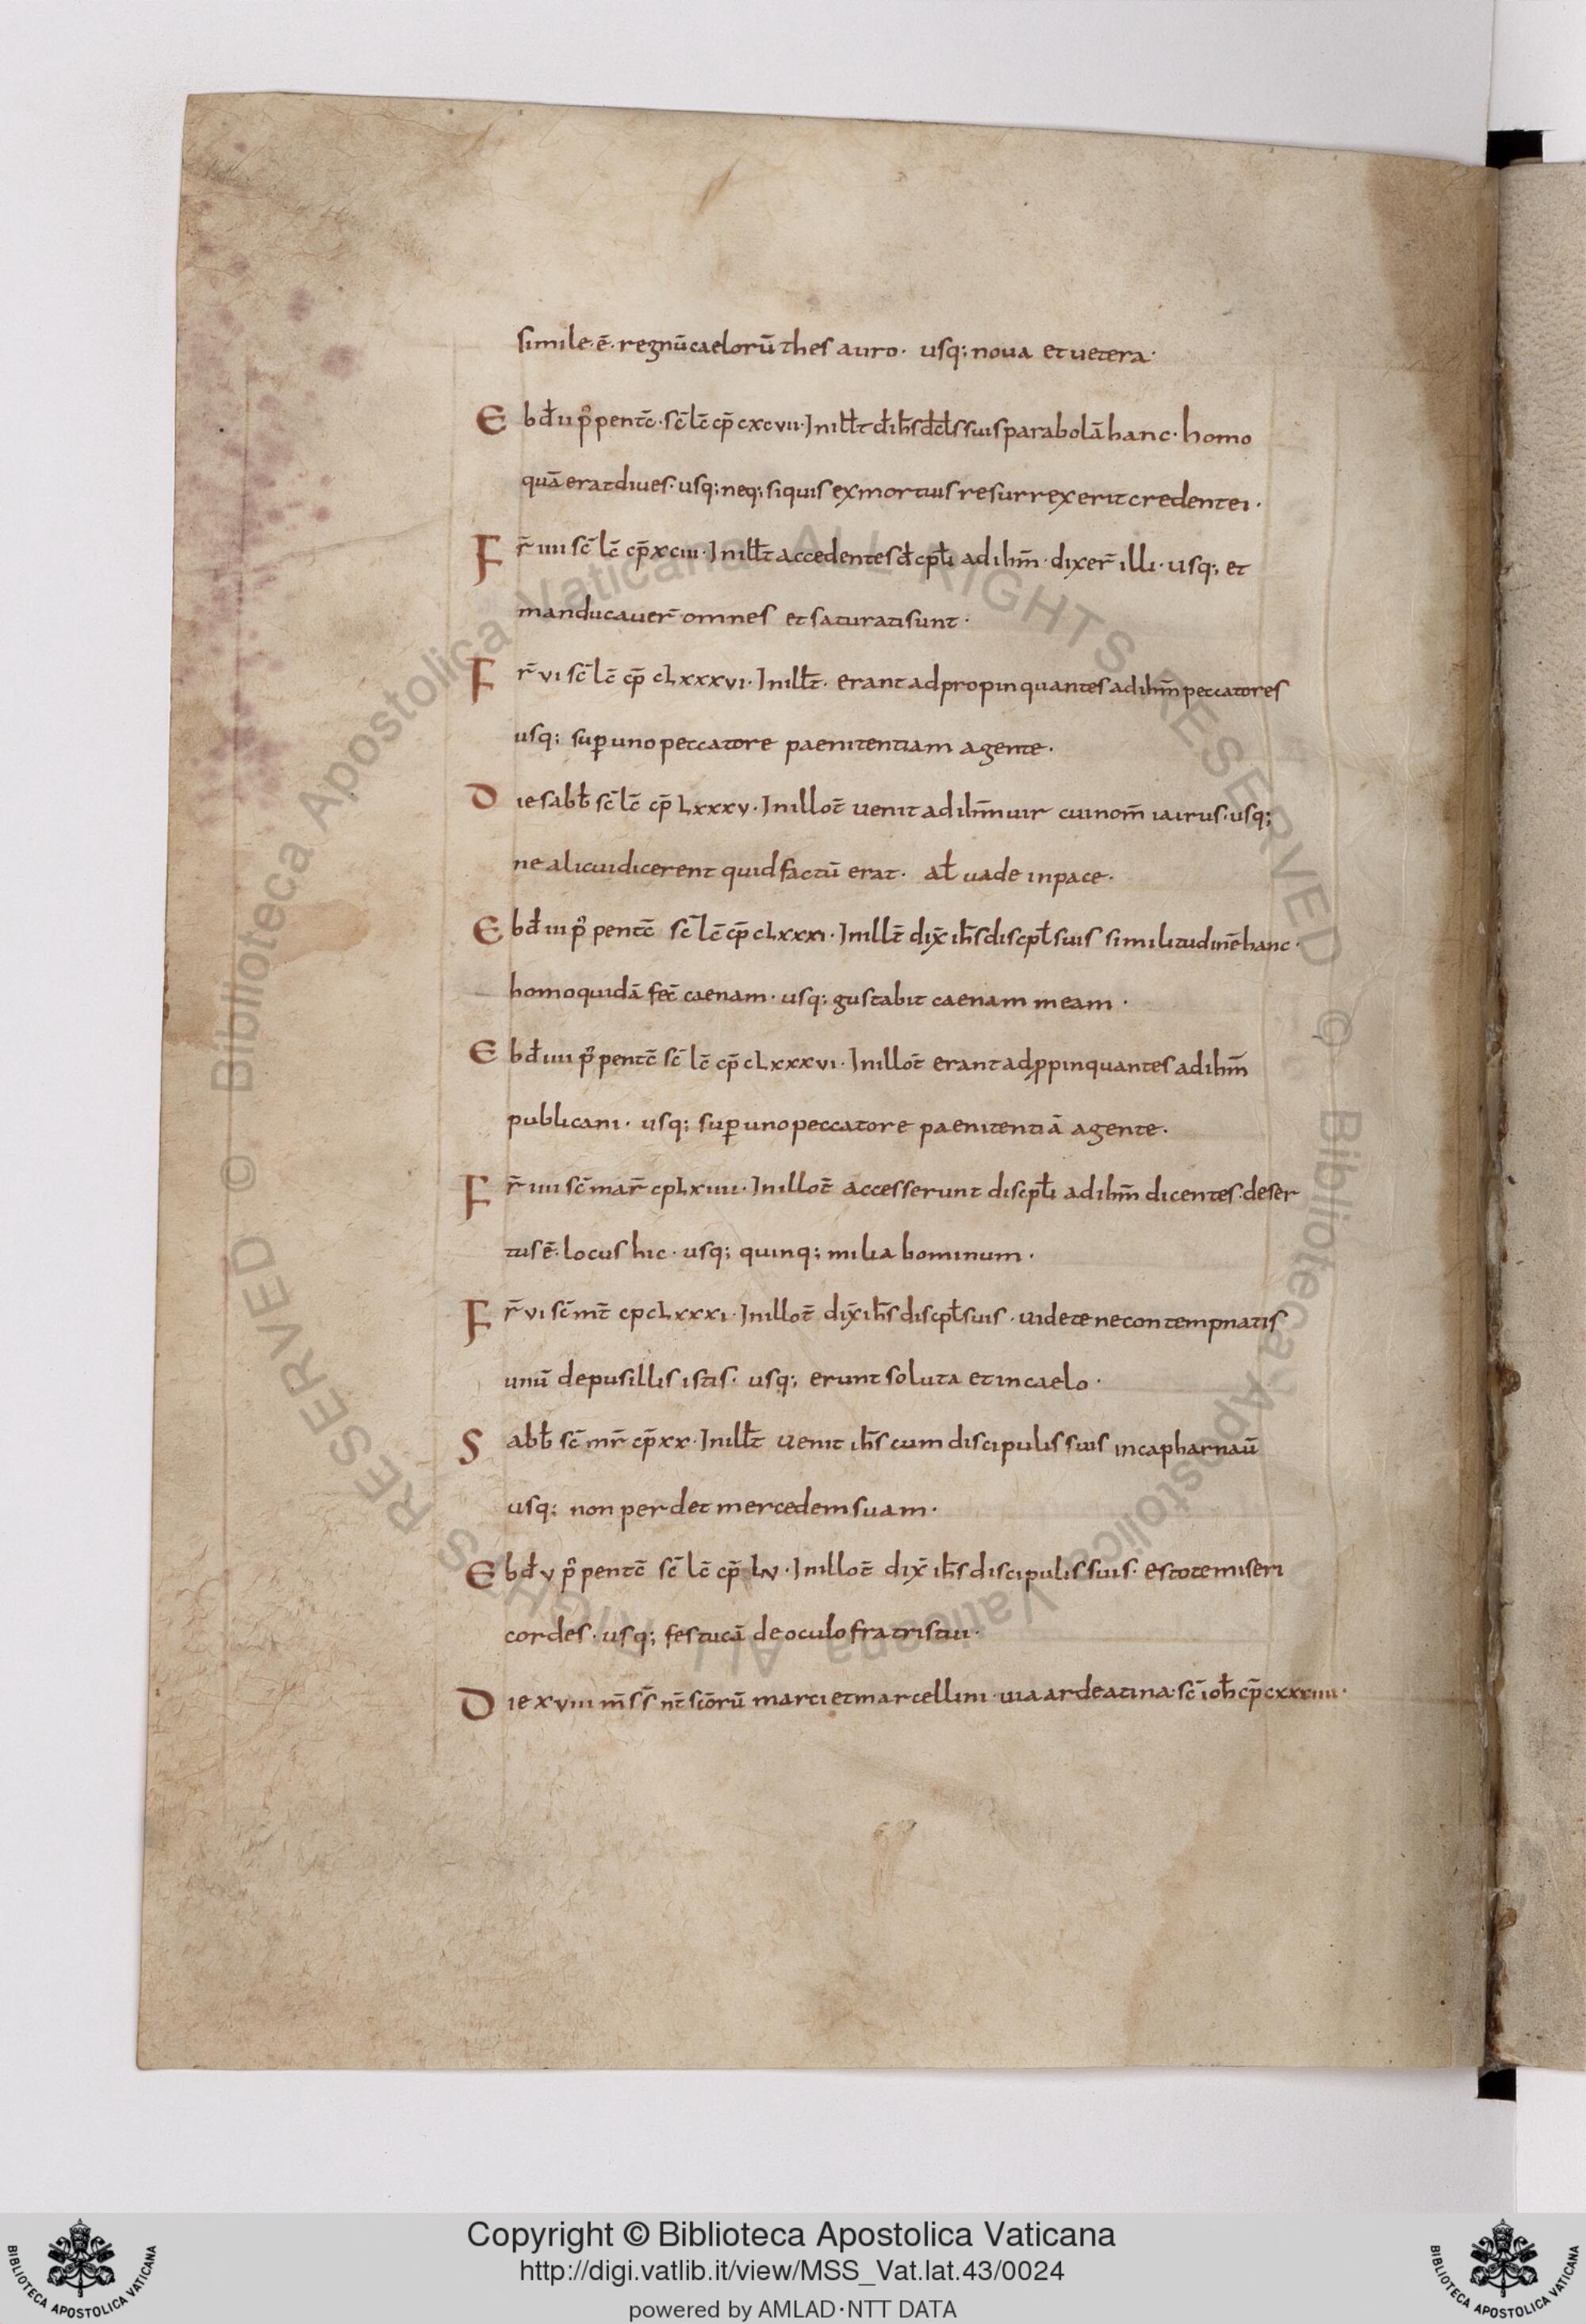 simile·ē·regnū caelorū thesauro· usq; noua et uetera·
Ebđ ii p̃ pentc̄· sc̄ lc̄ cp̄ cxcvii· In illt̄ d̄ ih̄s đcłs suis parabolā hanc· homo
quā erat diues· usq; neq; si quis ex mortuis resurrexerit credent ei·
Fr̄ iiii sc̄ lc̄ cp̄ xciii· In illt̄ accedentes đcpłi ad ihm̄· dixer̄ illi· usq; et
manducauer̄ omnes et saturati sunt·
Fr̄ vi sc̄ lc̄ cp̄ cLxxxvi· In illt̄· erant adpropinquantes ad ihm̄ peccatores
usq; suꝑ uno peccatore paenitentiam agente·
Die sabƀ sc̄ lc̄ cp̄ Lxxxv· In illot̄ uenit ad ihm̄ uir cui nom̄ iairus· usq;
ne alicui dicerent quid factū erat· ał uade in pace·
Ebđ iii p̃ pentc̄ sc̄ lc̄ cp̄ cLxxxi· In illt̄ dix̄ ih̄s discipłs suis similitudinē hanc·
homo quidā fec̄ caenam· usq; gustabit caenam meam·
Ebđ iiii p̃ pentc̄ sc̄ lc̄ cp̄ cLxxxvi· In illot̄ erant adꝓpinquantes ad ihm̄
publicani· usq; suꝑ uno peccatore paenitentiā agente·
Fr̄ iiii sc̄ mar̄ cp Lxiiii· In illot̄ accesserunt discpłi ad ihm̄ dicentes· deser
tus ē· locus hic· usq; quinq; milia hominum·
Fr̄ vi sc̄ mt̄ cp cLxxxi· In illot̄ dix̄ ih̄s discpłs suis· uidete ne contempnatis
unū de pusillis istis· usq; erunt soluta et in caelo·
Sabƀ sc̄ mr̄ cp̄ xx· In illt̄ uenit ih̄s cum discipulis suis in capharnaū
usq; non perdet mercedem suam·
Ebđ v p̃ pentc̄ sc̄ lc̄ cp̄ Lv· In illot̄ dix̄ ih̄s discipulis suis· estote miseri
cordes· usq; festucā de oculo fratris tui·
Die xviii m̄s s̄ nt̄ scōrū marci et marcellini uia ardeatina· sc̄ ioħ cp̄ cxxxiiii·
Copyright © Biblioteca Apostolica Vaticana
http://digi.vatlib.it/view/MSS_Vat.lat.43/0024
powered by AMLAD·NTT DATA
BIBLIOTECA APOSTOLICA VATICANA
BIBLIOTECA APOSTOLICA VATICANA
© Biblioteca Apostolica Vaticana ALL RIGHTS RESERVED © Biblioteca Apostolica Vaticana ALL RIGHTS RESERVED